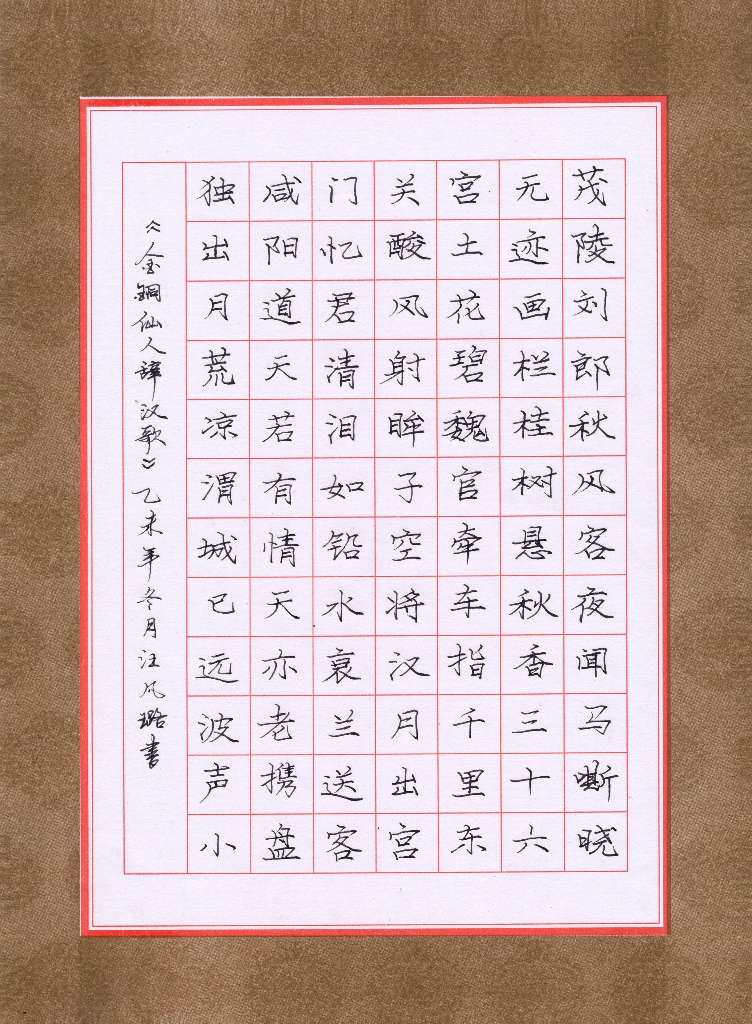 茂陵刘郎秋风客夜闻马嘶晓
无迹画栏桂树悬秋香三十六
宫土花碧魏官牵车指千里东
关酸风射眸子空将汉月出宫
门忆君清泪如铅水衰兰送客
咸阳道天若有情天亦老携盘
独出月荒凉渭城已远波声小
《金铜仙人辞汉歌》乙未年冬月汪凤璐书